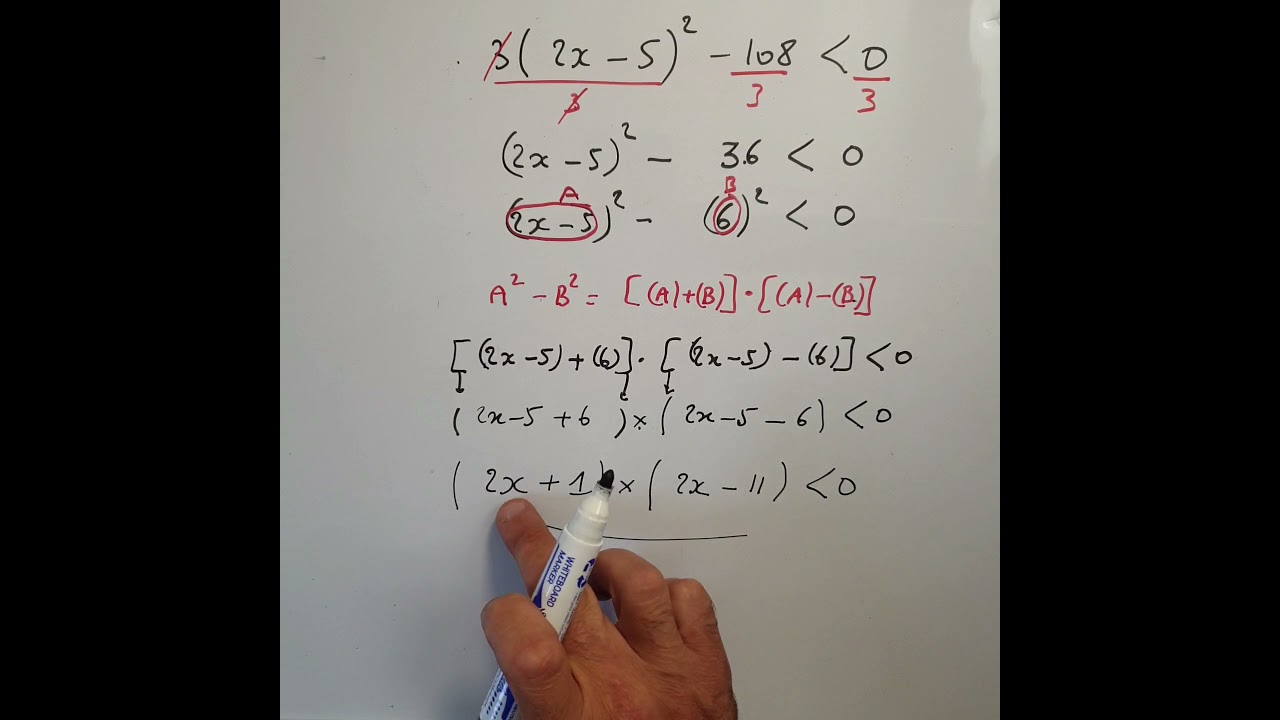 3(2x-5)² -108 < 0
3 3 3
(2x-5)² - 36 < 0
A B
(2x-5)² - (6)² < 0
A² - B² = [(A)+(B)]·[(A)-(B)]
[(2x-5)+(6)]·[(2x-5)-(6)]<0
(2x-5+6)×(2x-5-6)<0
(2x+1)×(2x-11)<0
WHITEBOARD
MARKER